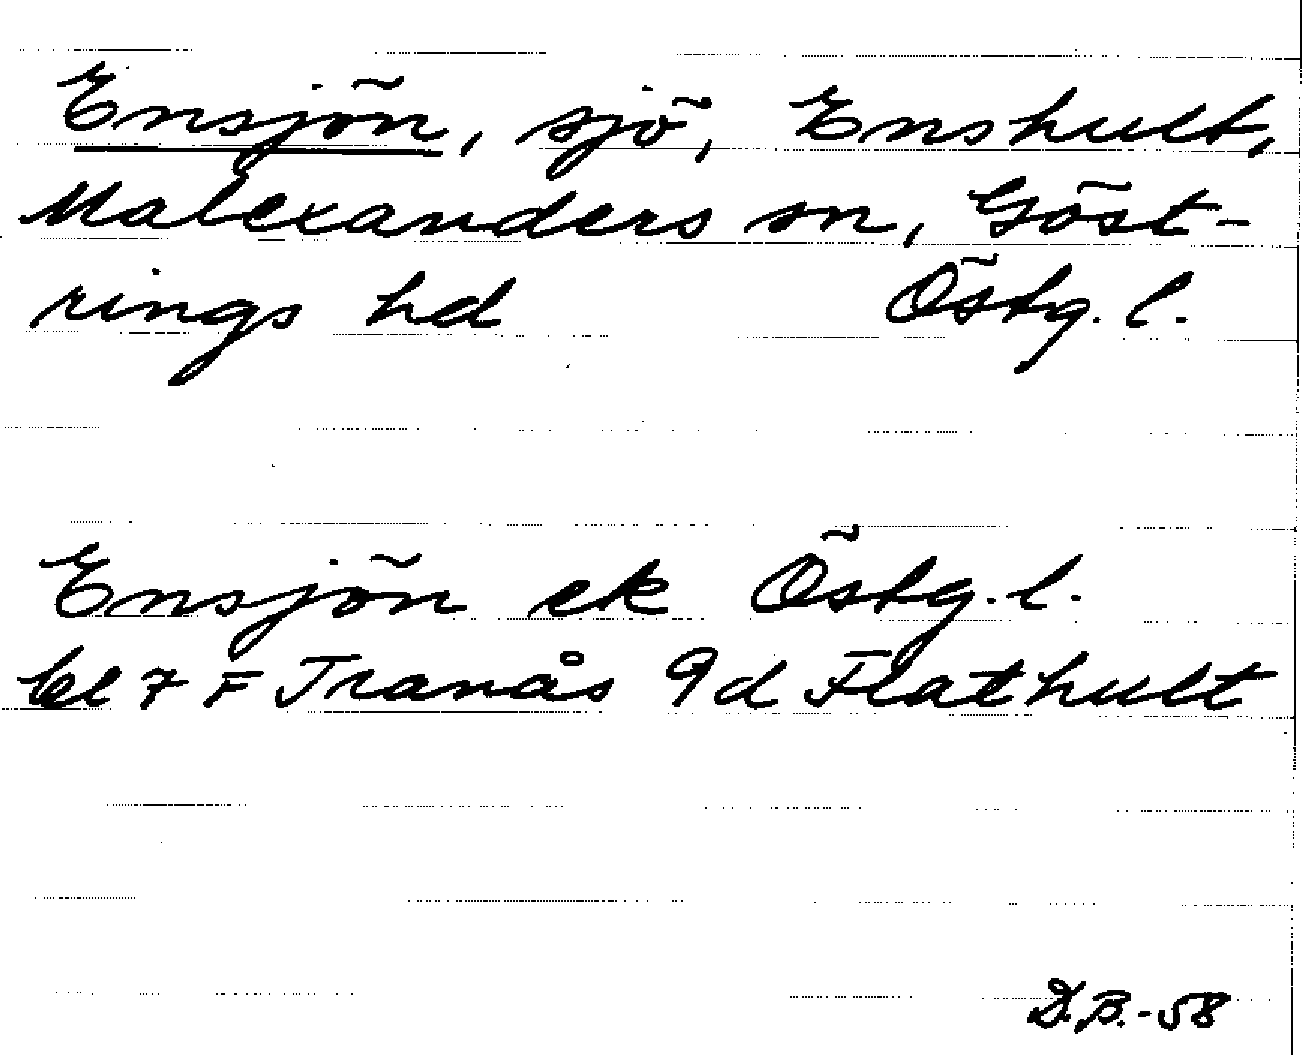 Ensjön, sjö, Enshult,
Malexanders sn, Göst-
rings hd Östg. l.
Ensjön ek Östg. l.
bl 7 F Tranås 9d Flathult
D.B.-58